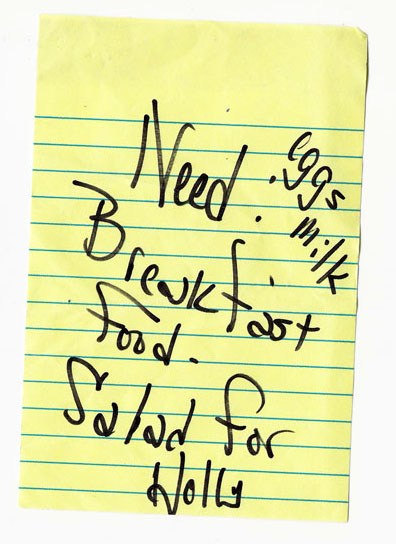 Need.
. eggs
. milk
Breakfast
food.
Salad for
Holly